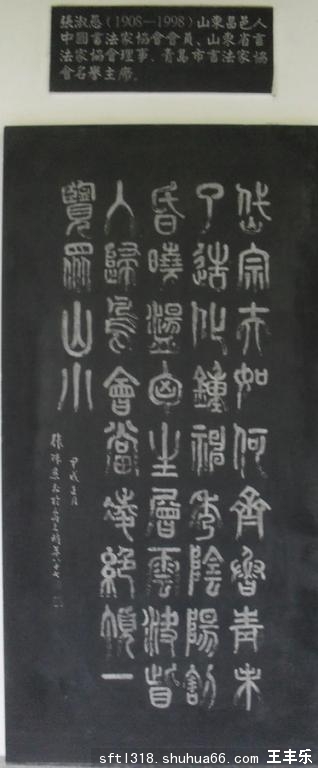 張淑愚(1908—1998)山東昌邑人
中國書法家協會會員、山東省書
法家協會理事、青島市書法家協
會名譽主席。
岱宗夫如何齊魯青未
了造化鍾神秀陰陽割
昏曉盪胸生層雲決眥
入歸鳥會當凌絕頂一
覽眾山小
甲戌月
張愚書於青島時年八十七
sftl318.shuhua66.com 王丰乐